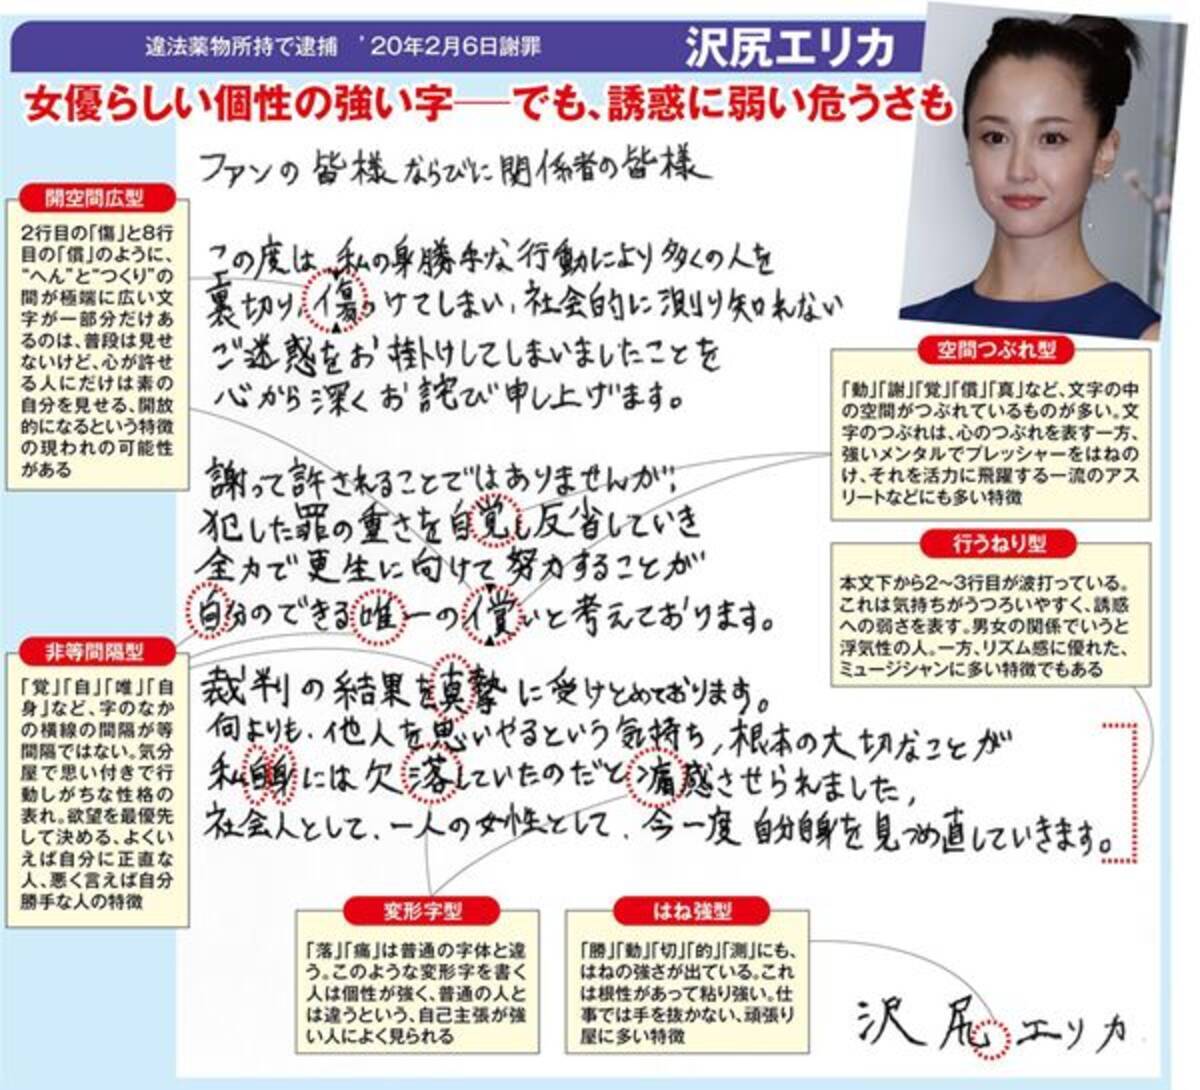 違法薬物所持で逮捕 ’20年2月6日謝罪
沢尻エリカ
女優らしい個性の強い字──でも、誘惑に弱い危うさも
ファンの皆様ならびに関係者の皆様
この度は、私の身勝手な行動により多くの人を
裏切り、傷つけてしまい、社会的に測り知れない
ご迷惑をお掛けしてしまいましたことを
心から深くお詫び申し上げます。
謝って許されることではありませんが、
犯した罪の重さを自覚し反省していき
全力で更生に向けて努力することが
自分のできる唯一の償いと考えております。
裁判の結果を真摯に受けとめております。
何よりも、他人を思いやるという気持ち、根本の大切なことが
私自身には欠落していたのだと痛感させられました。
社会人として、一人の女性として、今一度自分自身を見つめ直していきます。
沢尻エリカ
開空間広型
2行目の「傷」と8行
目の「償」のように、
“へん”と“つくり”の
間が極端に広い文
字が一部分だけあ
るのは、普段は見せ
ないけど、心が許せ
る人にだけは素の
自分を見せる、開放
的になるという特徴
の現われの可能性
がある
空間つぶれ型
「動」「謝」「覚」「償」「真」など、文字の中
の空間がつぶれているものが多い。文
字のつぶれは、心のつぶれを表す一方、
強いメンタルでプレッシャーをはねの
け、それを活力に飛躍する一流のアス
リートなどにも多い特徴
行うねり型
本文下から2〜3行目が波打っている。
これは気持ちがうつろいやすく、誘惑
への弱さを表す。男女の関係でいうと
浮気性の人。一方、リズム感に優れた、
ミュージシャンに多い特徴でもある
非等間隔型
「覚」「自」「唯」「自
身」など、字のなか
の横線の間隔が等
間隔ではない。気分
屋で思い付きで行
動しがちな性格の
表れ。欲望を最優先
して決める、よくい
えば自分に正直な
人、悪く言えば自分
勝手な人の特徴
変形字型
「落」「痛」は普通の字体と違
う。このような変形字を書く
人は個性が強く、普通の人と
は違うという、自己主張が強
い人によく見られる
はね強型
「勝」「動」「切」「的」「測」にも、
はねの強さが出ている。これ
は根性があって粘り強い。仕
事では手を抜かない、頑張り
屋に多い特徴